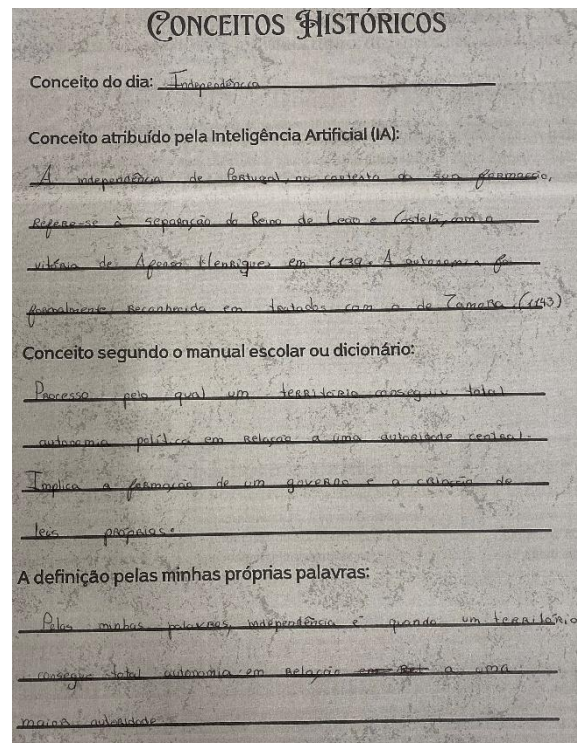 CONCEITOS HISTÓRICOS
Conceito do dia: Independência
Conceito atribuído pela Inteligência Artificial (IA):
A independência de Portugal, no contexto da sua formação,
refere-se à separação do Reino de Leão e Castela, com a
vitória de Afonso Henriques em 1139. A autonomia foi
formalmente reconhecida em tratados com o de Zamora (1143)
Conceito segundo o manual escolar ou dicionário:
Processo pelo qual um território conseguiu total
autonomia política em relação a uma autoridade central.
Implica a formação de um governo e a criação de
leis próprias.
A definição pelas minhas próprias palavras:
Pelas minhas palavras, independência é quando um território
consegue total autonomia em relação a uma
maior autoridade